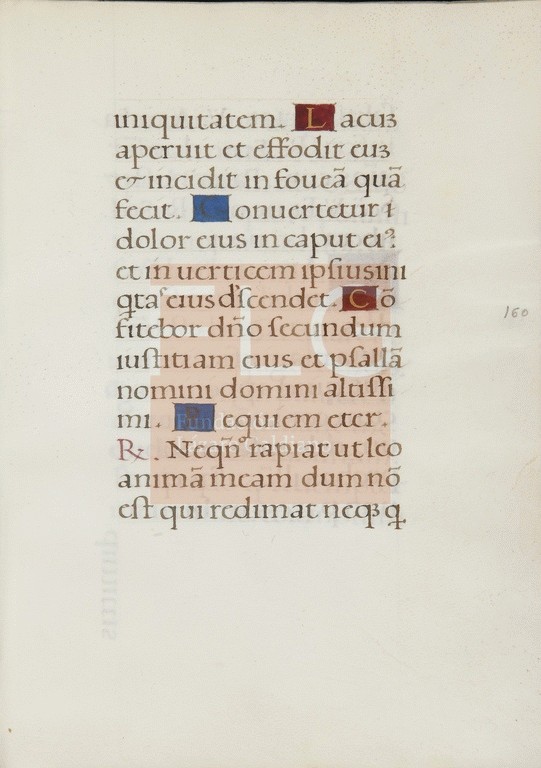 iniquitatem. Lacuʒ
aperuit et effodit euʒ
& incidit in foueā quā
fecit. Conuertetur ı
dolor eius in caput eiꝰ
et in uerticem ipsius ini
qtas eius dʼscendet. Cō
fitebor dño secundum
iustitiam eius et psallā
nomini domini altissi
mi. Requiem eter.
℞. Neqñ rapiat ut leo
animā meam dum nō
est qui redimat neqʒ q
160
Lázaro Galdiano